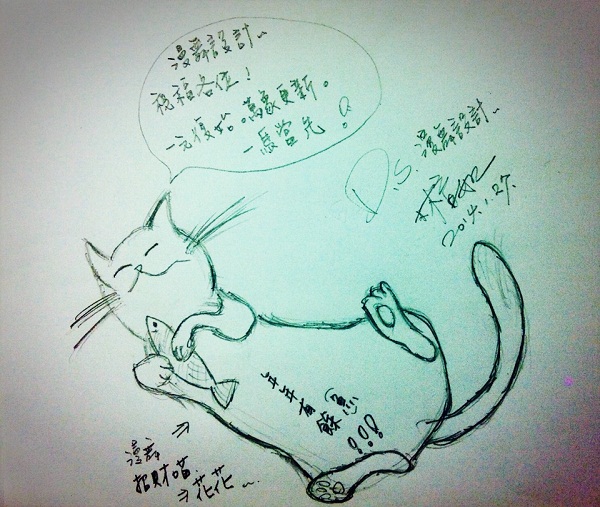 漫舞設計~
祝福各位!
一元復始。萬象更新。
一馬當先!
D.S. 漫舞設計~
2014.1.27.
年年有餘(魚)!!!
漫舞
招財喵
⇒花花~